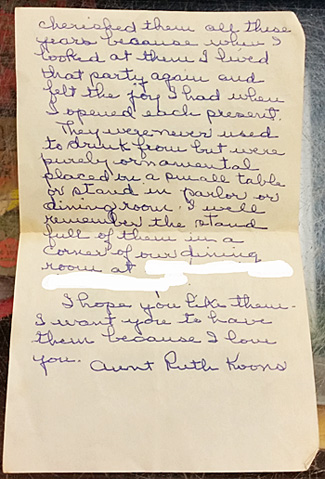 cherished them all these
years because when I
looked at them I lived
that party again and
felt the joy I had when
I opened each present.
They were never used
to drink from but were
purely ornamental
placed on a small table
or stand in parlor or
dining room. I well
remember the stand
full of them in a
corner of our dining
room at
I hope you like them.
I want you to have
them because I love
you. Aunt Ruth Koons